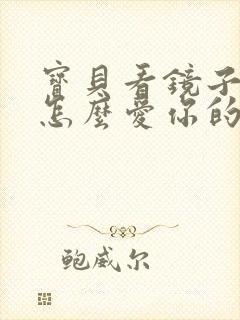 寶貝看鏡子
怎麼愛你的
鲍威尔